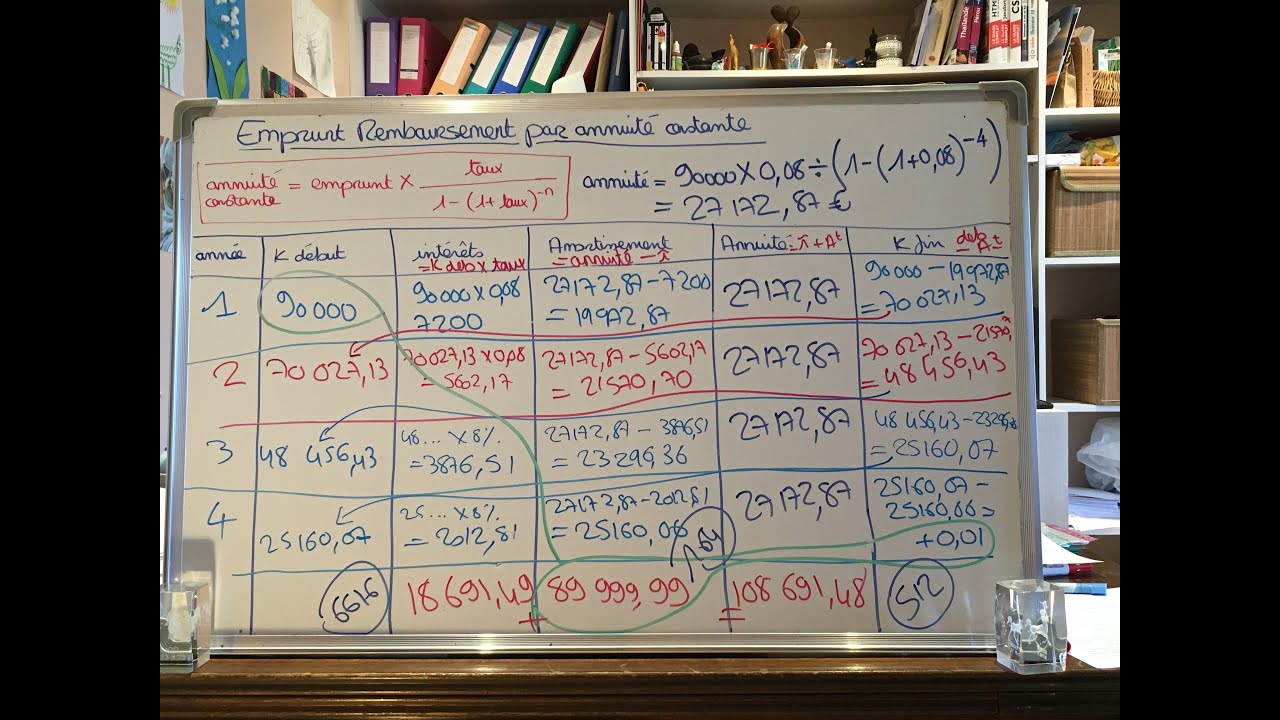 Thaïlande
Pérou
HTML
Javascript
CSS
Emprunt Remboursement par annuité constante
annuité constante = emprunt × taux / 1-(1+taux)^-n
annuité = 90000 × 0,08 ÷ (1-(1+0,08)^-4)
= 27172,87 €
année K début intérêts Amortissement Annuité = i + At K fin deb - At
= K deb x taux = annuité - i
1 90000 90000 x 0,08 27172,87-7200 27172,87 90000-19972,87
7200 = 19972,87 = 70027,13
2 70 027,13 70 027,13 x 0,08 27172,87-5602,17 27172,87 70 027,13-21570,
= 5602,17 = 21570,70 = 48 456,43
3 48 456,43 48... x 8% 27172,87-3876,51 27172,87 48 456,43-23296,36
= 3876,51 = 23296,36 = 25160,07
4 25160,07 25... x 8% 27172,87-2012,81 27172,87 25160,07-
= 2012,81 = 25160,06 25160,06 =
+0,01
6616 18 691,49 + 89 999,99 = 108 691,48 512